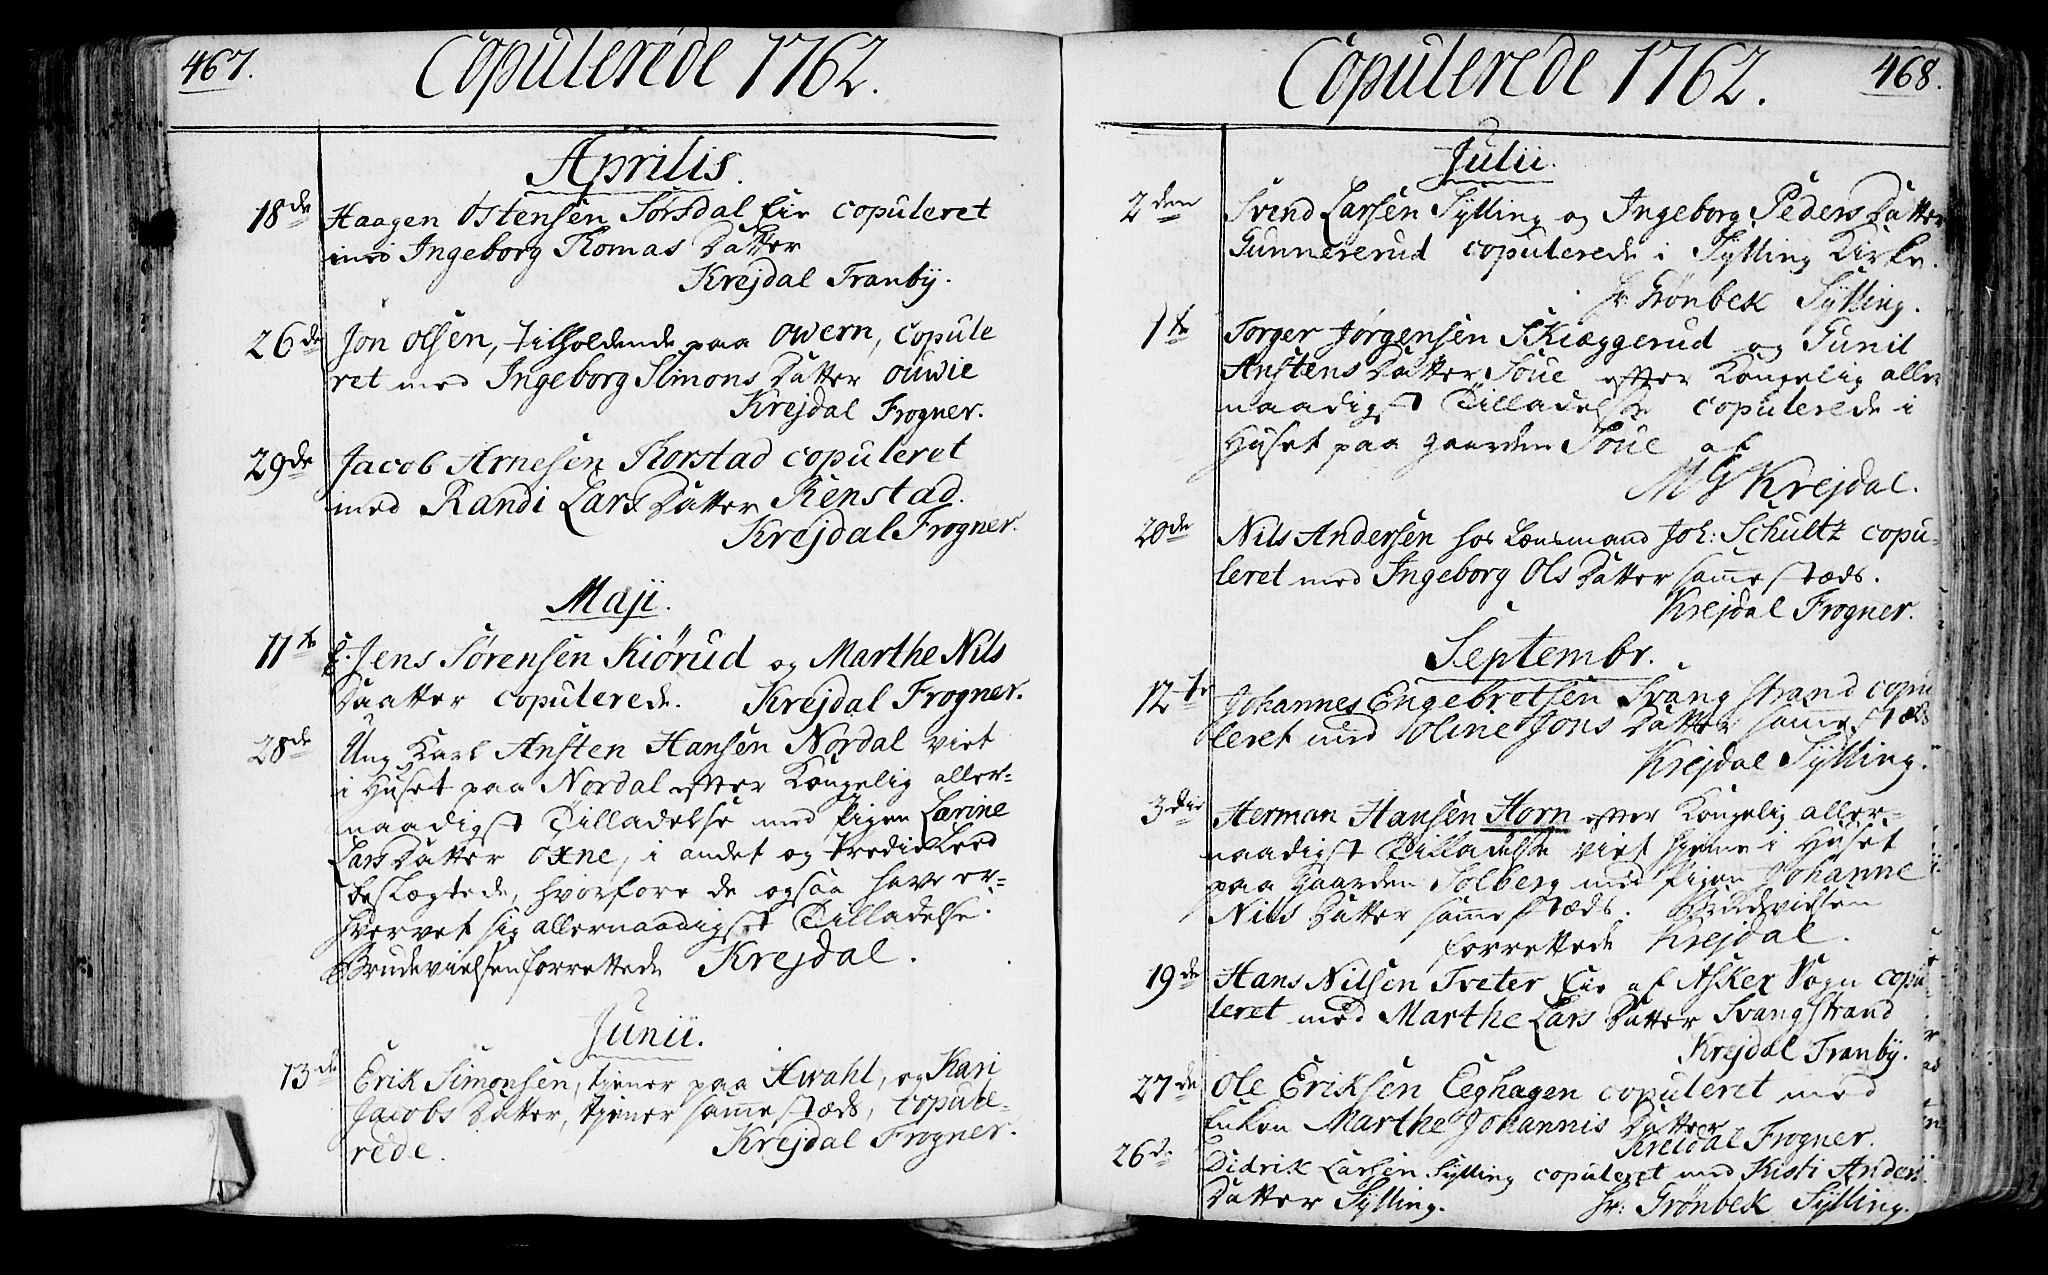 467.
Copulerede 1762.
Aprilis.
18de Haagen Ostensen Sørsdal Eie copuleret
med Ingeborg Thomas Datter
Krejdal Tranby.
26de Jon Olsen, tilholdende paa Owern, copule
ret med Ingeborg Simons Datter Ouwie
Krejdal Frogner.
29de Jacob Arnesen Korstad copuleret
med Randi Lars Datter Renstad.
Krejdal Frogner.
Maji.
11te Jens Sørensen Kiørud og Marthe Nils
Daatter copulerede. Krejdal Frogner.
28de Ung Karl Ansten Hansen Nordal viet
i Huset paa Nordal efter Kongelig aller-
naadigst Tilladelse med Pigen Larine
Lars Datter Oxne, i andet og tredie Leed
beslægtede, hvorfore de ogsaa have er-
hvervet sig allernaadigst Tilladelse.
Brudevielsen forrettede Krejdal.
Junii.
13de Erik Simonsen, tjener paa Hwahl, og Kari
Jacobs Datter, tjener samme stæds, copule-
rede. Krejdal Frogner.
Copulerede 1762.
468.
Julii.
2den Svend Larsen Sylling og Ingeborg Peders Datter
Gunnererud copulerede i Sylling Kirke.
Hr: Grønbek Sylling.
1te Torger Jørgensen Skiæggerud og Gunil
Anstens Datter Soue efter Kongelig aller
naadigst Tilladelse copulerede i
Huset paa gaarden Soue af
MG Krejdal.
20de Nils Andersen hos Lensmand Joh: Schultz copu-
leret med Ingeborg Ols Datter samme stæds.
Krejdal Frogner.
Septembr.
12te Johannes Engebretsen Svangstrand copu
leret med Oline Jons Datter samme stæds
Krejdal Sylling.
3die Herman Hansen Horn efter Kongelig aller-
naadigst Tilladelse viet hjeme i Huset
paa Gaarden Solberg med Pigen Johanne
Nils Datter samme stæds. Brudevielsen
forrettede Krejdal.
19de Hans Nilsen Tveter Eie af Asker Sogn copu
leret med Marthe Lars Datter Svangstrand
Krejdal Tranby.
27de Ole Eriksen Eeghagen copuleret med
Enken Marthe Johannis Datter
Kreidal Frogner.
26de Didrik Larsen Sylling copuleret med Kisti Anders
Datter Sylling. Hr: Grønbek Sylling.